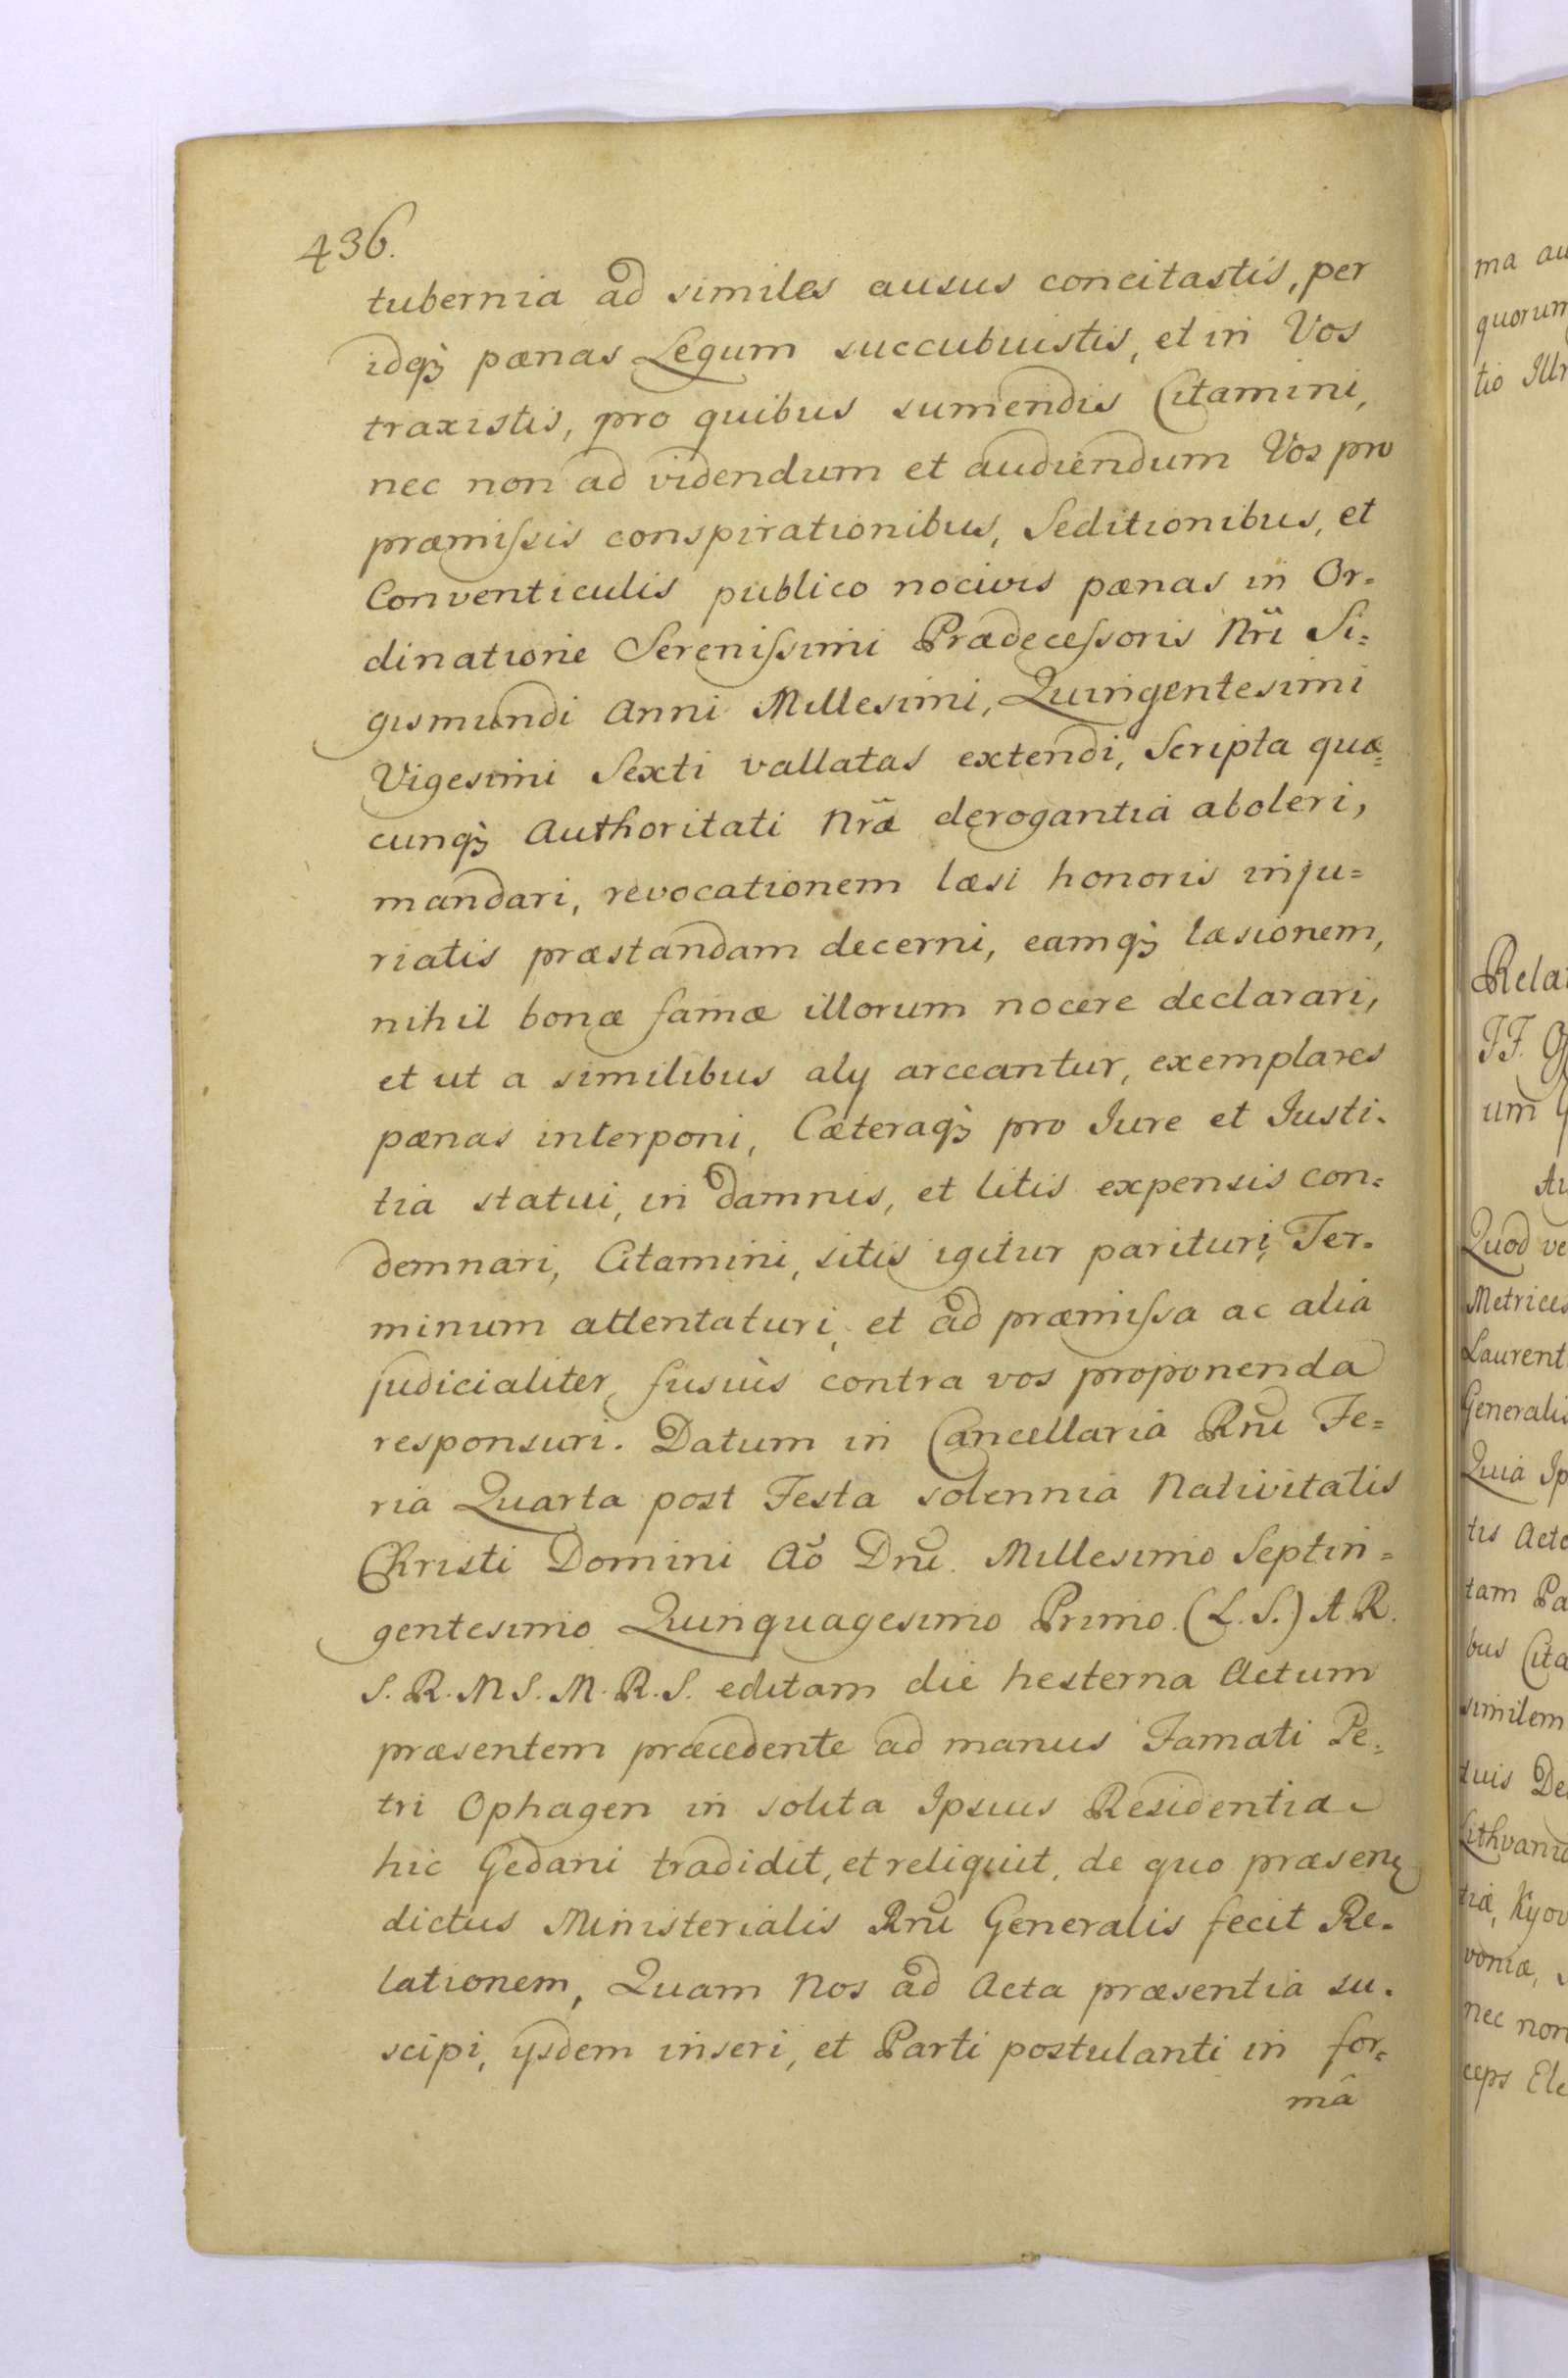 436.
tubernia ad similes ausus concitastis, per
idqꝫ pœnas Legum succubuistis, et in Vos
traxistis, pro quibus sumendis Citamini,
nec non ad videndum et audiendum Vos pro
præmiſsis conspirationibus, Seditionibus, et
Conventiculis publico nocivis pœnas in Or=
dinatione Sereniſsimi Prædeceſsoris Nr̃i Si=
gismundi Anni Millesimi, Quingentesimi
Vigesimi Sexti vallatas extendi, Scripta quæ=
cunqꝫ Authoritati Nr̃æ derogantia aboleri,
mandari, revocationem læsi honoris inju=
riatis præstandam decerni, eamqꝫ læsionem,
nihil bonæ famæ illorum nocere declarari,
et ut a similibus alij arceantur, exemplares
pœnas interponi, Cæteraqꝫ pro Jure et Justi=
tia statui, in damnis, et litis expensis con=
demnari, Citamini, sitis igitur parituri, Ter=
minum attentaturi, et ad præmiſsa ac alia
judicialiter fusiùs contra vos proponenda
responsuri. Datum in Cancellaria Rñi Fe=
ria Quarta post Festa solennia Nativitatis
Christi Domini Aõ Dñi. Millesimo Septin=
gentesimo Quinquagesimo Primo. (L.S.) A. R.
S. R. M S. M. R. S. editam die hesterna Actum
præsentem præcedente ad manus Famati Pe=
tri Ophagen in solita Ipsius Residentia
hic Gedani tradidit, et reliquit, de quo præsens
dictus Ministerialis Rñi Generalis fecit Re=
lationem, Quam Nos ad Acta præsentia su=
scipi, ijsdem inseri, et Parti postulanti in for=
mâ
ma au
quorum
tio Illr
Rela
JJ.
um
Quod ve
Metrices
Laurent
Generalis
Quia Ip
tis Acto
tam Pa
bus Cita
similem
suis De
Lithvania
tiæ, Kyov
voniæ,
nec non
ceps Ele